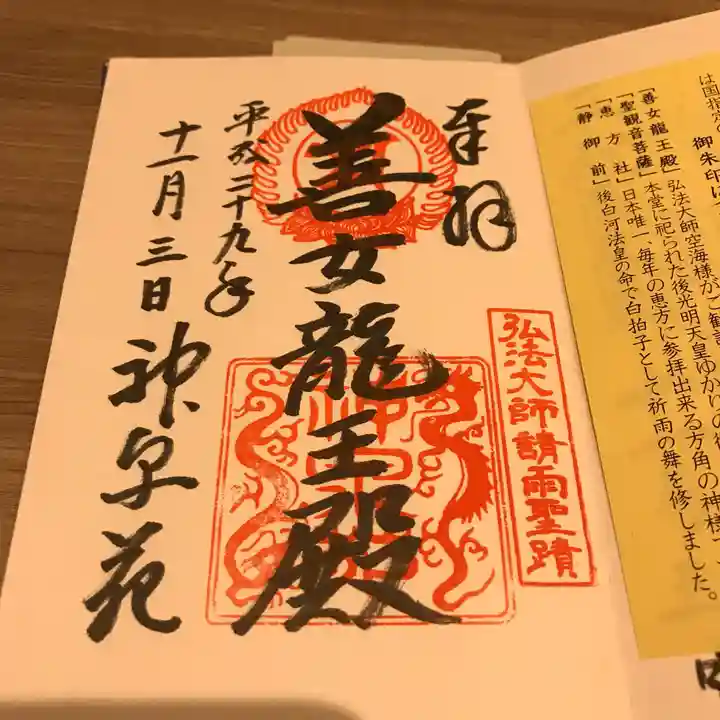 奉拝
弘法大師請雨聖蹟
善女龍王殿
平成二十九年
十一月三日
神泉苑
は国指定
御朱印は
「善女龍王殿」弘法大師空海様がご勧請
「聖観音菩薩」本堂に祀られた後光明天皇ゆかりの
「恵方社」日本唯一、毎年の恵方に参拝出来る方角の神様で、
「静御前」後白河法皇の命で白拍子として祈雨の舞を修しました。